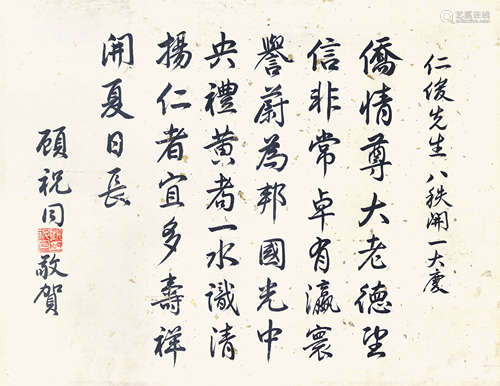 仁俊先生八秩開一大慶
僑情尊大老德望
信非常卓有瀛寰
譽蔚為邦國光中
央禮黃耇一水識清
揚仁者宜多壽祥
開夏日長
顧祝同敬賀